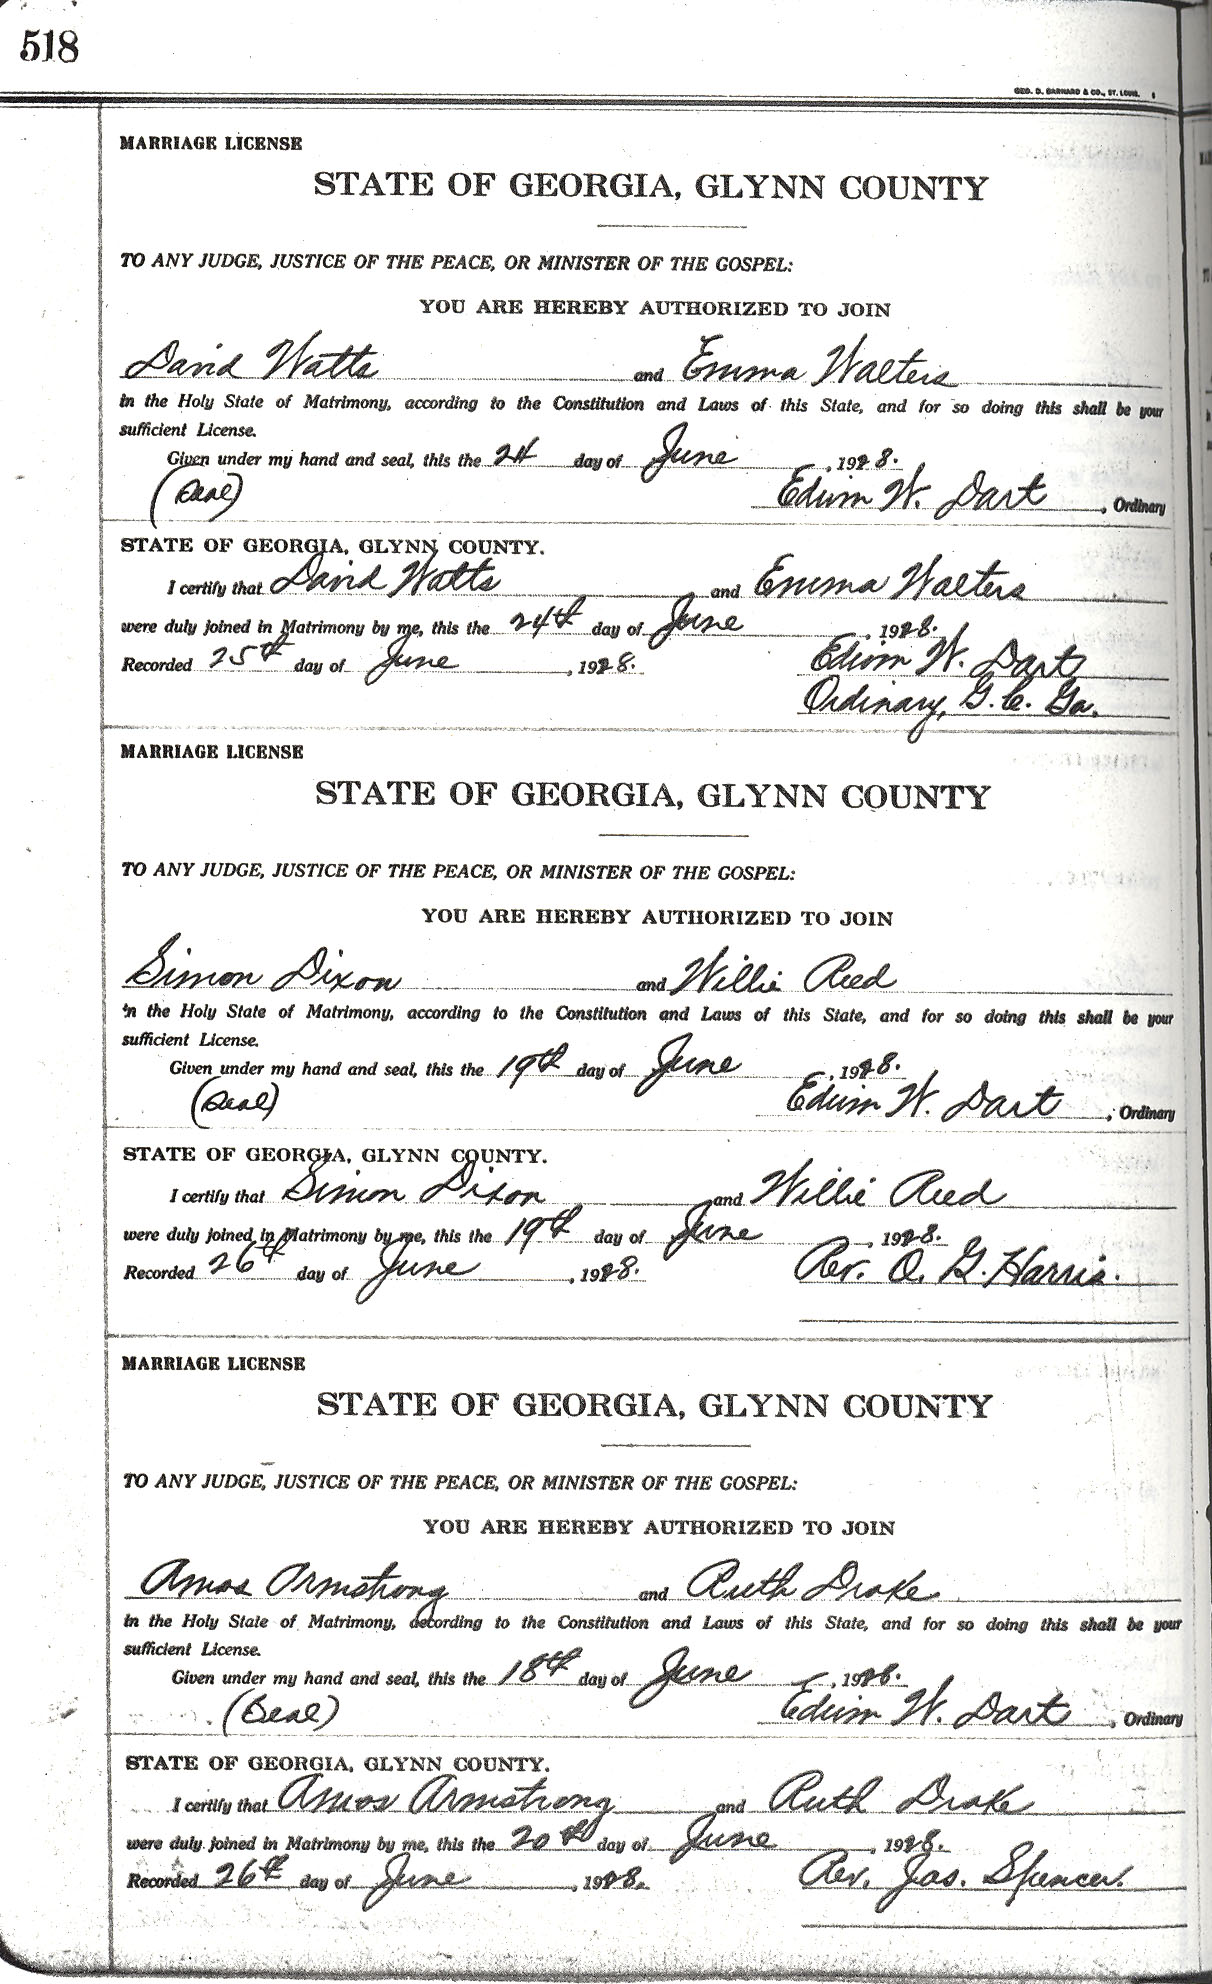 518
GEO. D. BARNARD & CO., ST. LOUIS.
MARRIAGE LICENSE
STATE OF GEORGIA, GLYNN COUNTY
TO ANY JUDGE, JUSTICE OF THE PEACE, OR MINISTER OF THE GOSPEL:
YOU ARE HEREBY AUTHORIZED TO JOIN
David Watts and Emma Walters
in the Holy State of Matrimony, according to the Constitution and Laws of this State, and for so doing this shall be your
sufficient License.
Given under my hand and seal, this the 24 day of June, 1928.
(Seal) Edwin W. Dart, Ordinary
STATE OF GEORGIA, GLYNN COUNTY.
I certify that David Watts and Emma Walters
were duly joined in Matrimony by me, this the 24th day of June, 1928.
Recorded 25th day of June, 1928. Edwin W. Dart
Ordinary, G. C. Ga.
MARRIAGE LICENSE
STATE OF GEORGIA, GLYNN COUNTY
TO ANY JUDGE, JUSTICE OF THE PEACE, OR MINISTER OF THE GOSPEL:
YOU ARE HEREBY AUTHORIZED TO JOIN
Simon Dixon and Willie Reed
in the Holy State of Matrimony, according to the Constitution and Laws of this State, and for so doing this shall be your
sufficient License.
Given under my hand and seal, this the 19th day of June, 1928.
(Seal) Edwin W. Dart, Ordinary
STATE OF GEORGIA, GLYNN COUNTY.
I certify that Simon Dixon and Willie Reed
were duly joined in Matrimony by me, this the 19th day of June, 1928.
Recorded 26th day of June, 1928. Rev. O. G. Harris.
MARRIAGE LICENSE
STATE OF GEORGIA, GLYNN COUNTY
TO ANY JUDGE, JUSTICE OF THE PEACE, OR MINISTER OF THE GOSPEL:
YOU ARE HEREBY AUTHORIZED TO JOIN
Amos Armstrong and Ruth Drake
in the Holy State of Matrimony, according to the Constitution and Laws of this State, and for so doing this shall be your
sufficient License.
Given under my hand and seal, this the 18th day of June, 1928.
(Seal) Edwin W. Dart, Ordinary
STATE OF GEORGIA, GLYNN COUNTY.
I certify that Amos Armstrong and Ruth Drake
were duly joined in Matrimony by me, this the 20th day of June, 1928.
Recorded 26th day of June, 1928. Rev. Jas. Spencer.